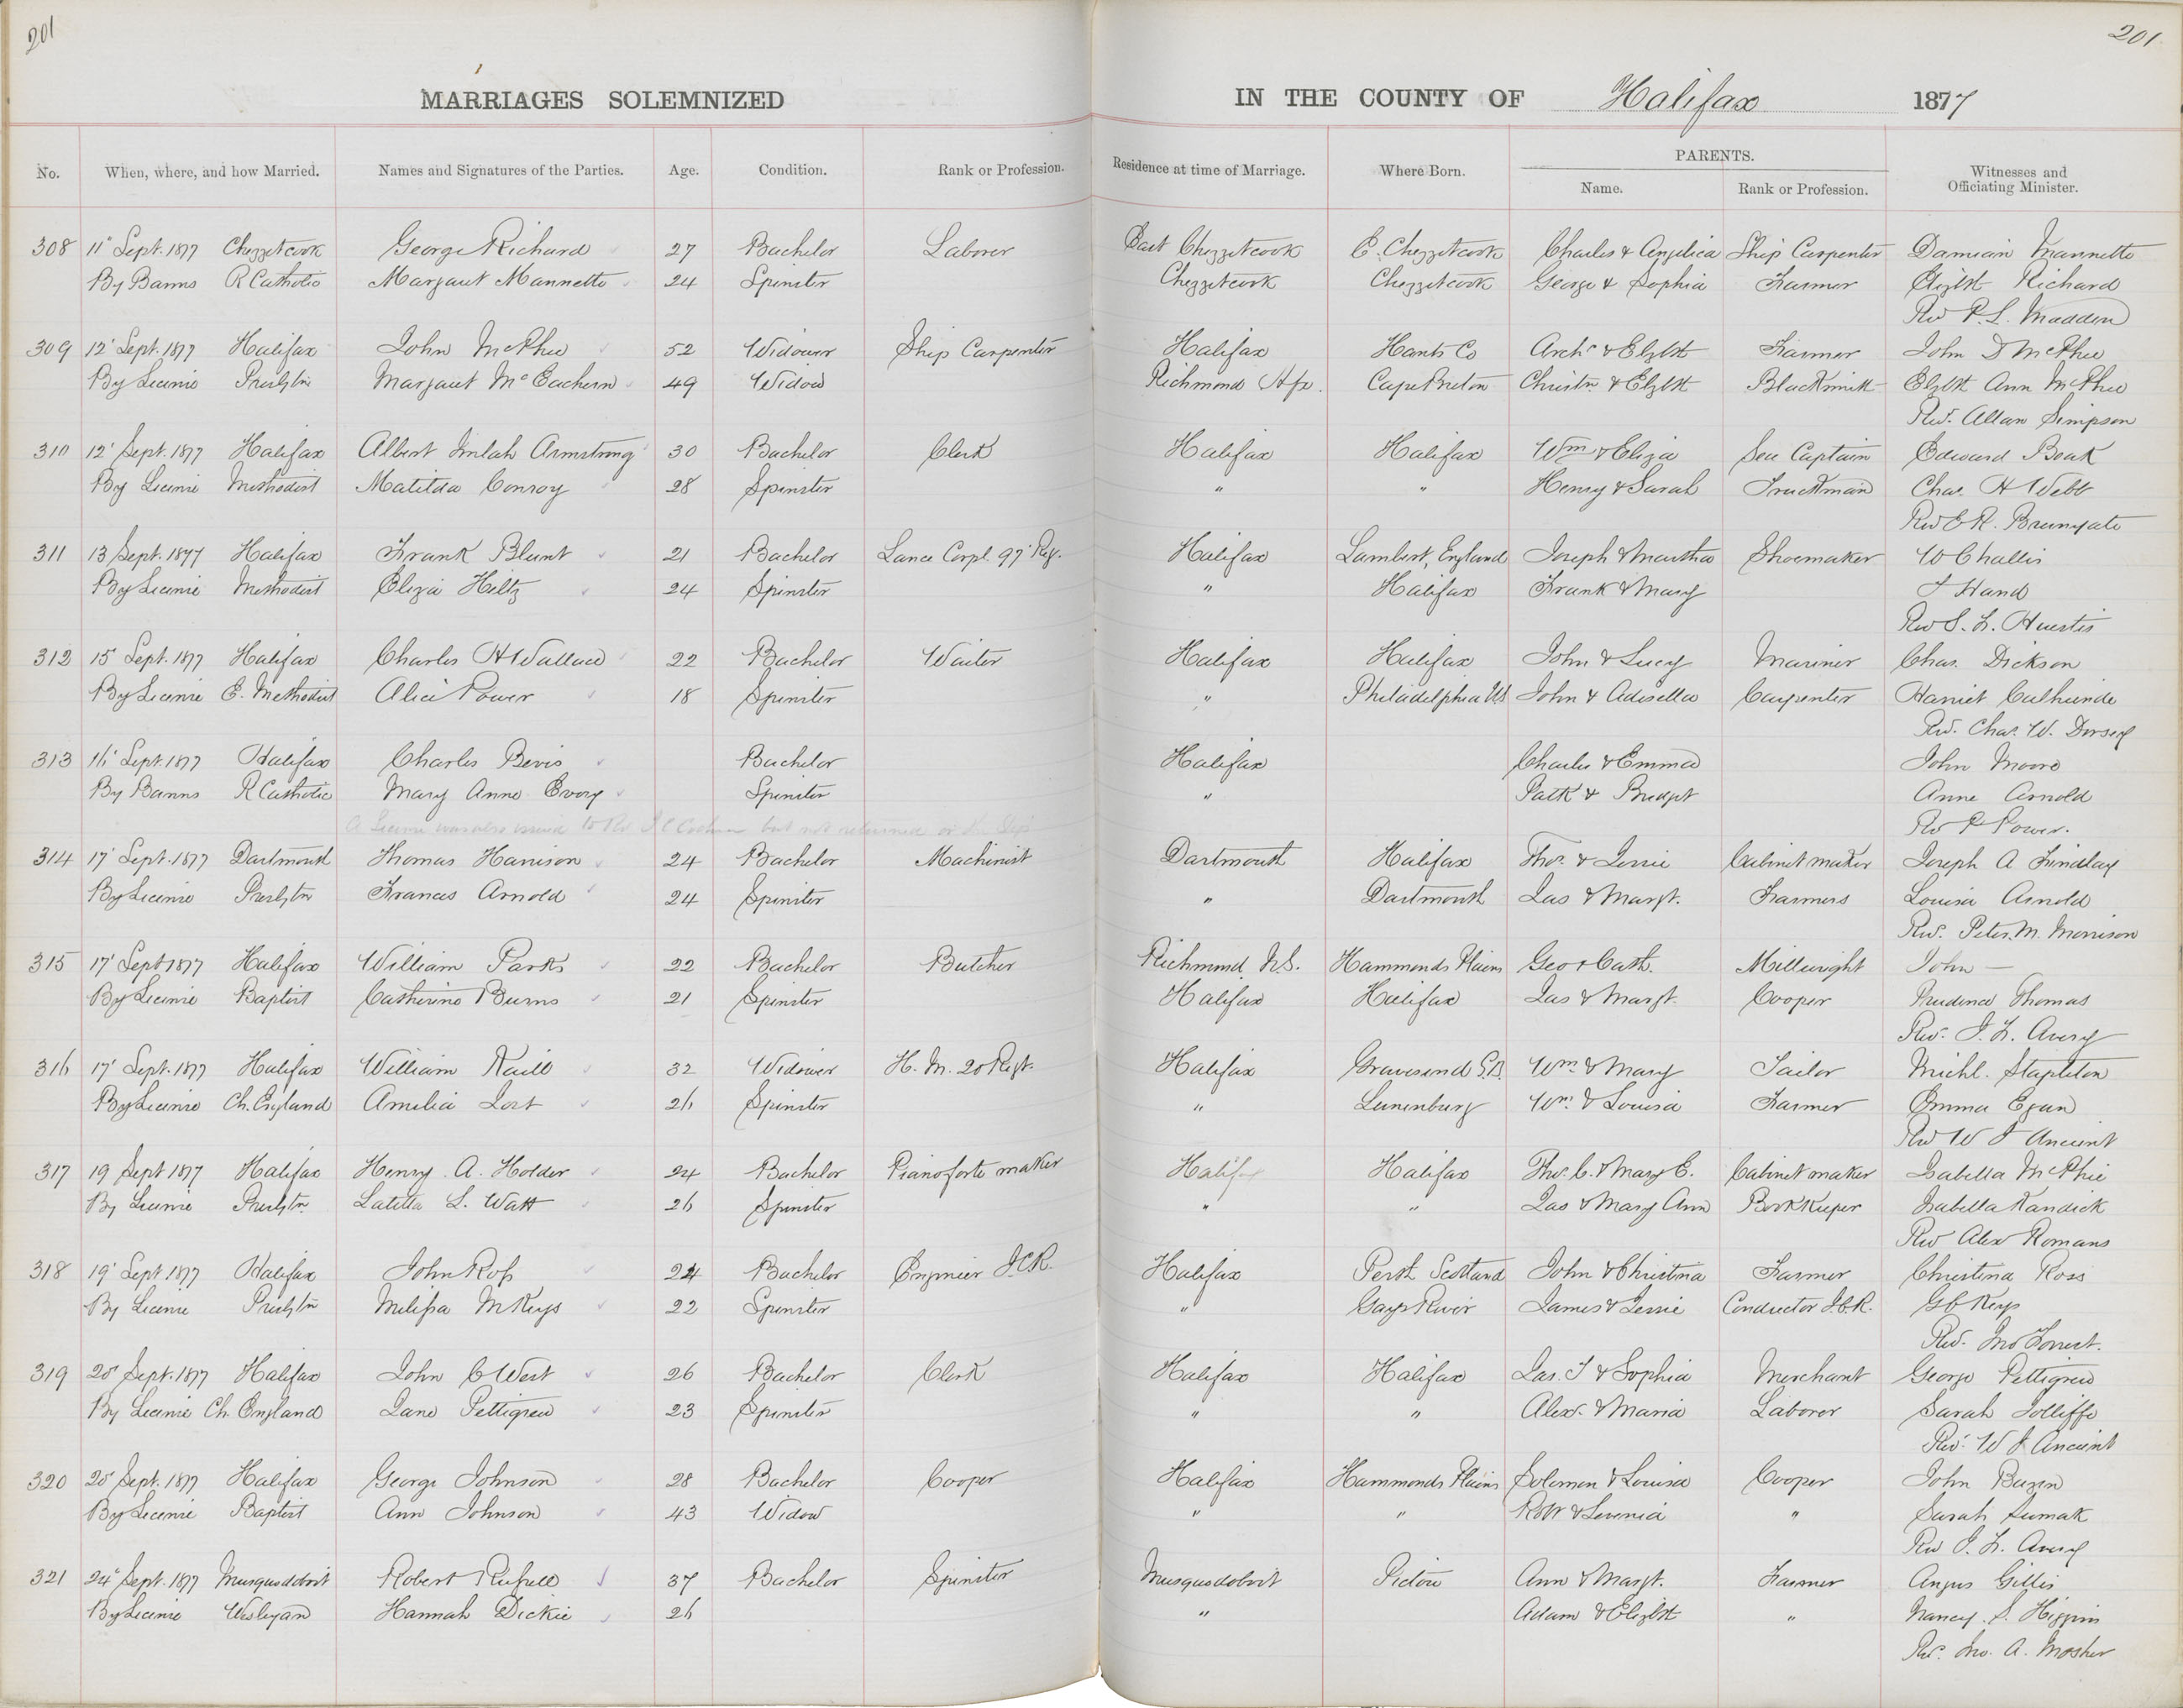 201
201
MARRIAGES SOLEMNIZED IN THE COUNTY OF Halifax 1877
No. When, where, and how Married. Names and Signatures of the Parties. Age. Condition. Rank or Profession. Residence at time of Marriage. Where Born. PARENTS. Name. Rank or Profession. Witnesses and Officiating Minister.
308 11" Sept. 1877 Chezzetcook George Richard 27 Bachelor Laborer East Chezzetcook E. Chezzetcook Charles & Angelica Ship Carpenter Damian Mannette
By Banns R Catholic Margaret Mannette 24 Spinster Chezzetcook Chezzetcook George & Sophia Farmer Elizbt Richard
Rev P. L. Madden
309 12' Sept. 1877 Halifax John McPhee 52 Widower Ship Carpenter Halifax Hants Co Archd & Elzbt Farmer John D McPhee
By License Presbytn Margaret McEachern 49 Widow Richmond Hfx. Cape Breton Christn & Elzbt Blacksmith Elzbt Ann McPhee
Rev. Allan Simpson
310 12' Sept. 1877 Halifax Albert Imlah Armstrong 30 Bachelor Clerk Halifax Halifax Wm & Eliza Sea Captain Edward Boak
By License Methodist Matilda Conroy 28 Spinster " " Henry & Sarah Truckman Chas. H Webb
Rev E R. Brunyate
311 13 Sept. 1877 Halifax Frank Blunt 21 Bachelor Lance Corpl. 97' Reg. Halifax Lambert, England Joseph & Martha Shoemaker W Challis
By License Methodist Eliza Heltz 24 Spinster " Halifax Frank & Mary J Hand
Rev S. F. Huestis
312 15 Sept. 1877 Halifax Charles H Wallace 22 Bachelor Waiter Halifax Halifax John & Lucy Mariner Chas. Dickson
By License E. Methodist Alice Power 18 Spinster " Philadelphia US John & Adisella Carpenter Harriet
Rev. Chas. W. Dorsey
313 16' Sept. 1877 Halifax Charles Bevis Bachelor Halifax Charles & Emma John Moore
By Banns R Catholic Mary Anne Evory Spinster " Patk & Bridget Anne Arnold
A License was also issued to Rev but not returned
Rev P Power.
314 17' Sept. 1877 Dartmouth Thomas Harrison 24 Bachelor Machinist Dartmouth Halifax Thos. & Jessie Cabinet maker Joseph A Findlay
By License Presbytn Frances Arnold 24 Spinster " Dartmouth Jas & Margt. Farmers Louisa Arnold
Rev. Peter. M. Morrison
315 17' Sept 1877 Halifax William Parks 22 Bachelor Butcher Richmond, N.S. Hammonds Plains Geo & Cath. Millwright John —
By License Baptist Catherine Burns 21 Spinster Halifax Halifax Jas & Margt. Cooper Prudence Thomas
Rev. J. F. Avery
316 17' Sept. 1877 Halifax William Kaill 32 Widower H. M. 20 Regt. Halifax Gravesend G.B. Wm. & Mary Tailor Michl. Stapleton
By License Ch. England Amelia Jost 26 Spinster " Lunenburg Wm. & Louisa Farmer Emma Egan
Rev W J Ancient
317 19 Sept 1877 Halifax Henry A. Holder 24 Bachelor Pianoforte maker Halifax Halifax Thos. C. & Mary E. Cabinet maker Isabella McPhie
By License Presbytn Latitia L. Watt 26 Spinster " " Jas & Mary Ann Book Keeper Isabella Kandick
Rev Alex Romans
318 19' Sept. 1877 Halifax John Ross 24 Bachelor Engineer I.C.R. Halifax Perth Scotland John & Christina Farmer Christina Ross
By License Presbytn Melissa McKeys 22 Spinster " Gays River James & Jessie Conductor I.C.R. G C Keys
Rev. Jno Forrest.
319 20' Sept. 1877 Halifax John C West 26 Bachelor Clerk Halifax Halifax Jas. T & Sophia Merchant George Pettigrew
By License Ch. England Jane Pettigrew 23 Spinster " " Alexr. & Maria Laborer Sarah Jolliffe
Rev. W J Ancient
320 20' Sept. 1877 Halifax George Johnson 28 Bachelor Cooper Halifax Hammonds Plains Solomon & Louisa Cooper John Bazen
By License Baptist Ann Johnson 43 Widow " " Robt & Levenia " Sarah
Rev J. F. Avery
321 24" Sept. 1877 Musquodoboit Robert Russell 37 Bachelor Spinster Musquodoboit Pictou Ann & Margt. Farmer Angus Gillis
By License Wesleyan Hannah Dickie 26 " Adam & Elizbt " Nancy S. Higgins
Rev. Jno. A. Mosher